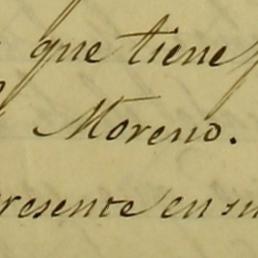 que tiene
Moreno.
resente en su